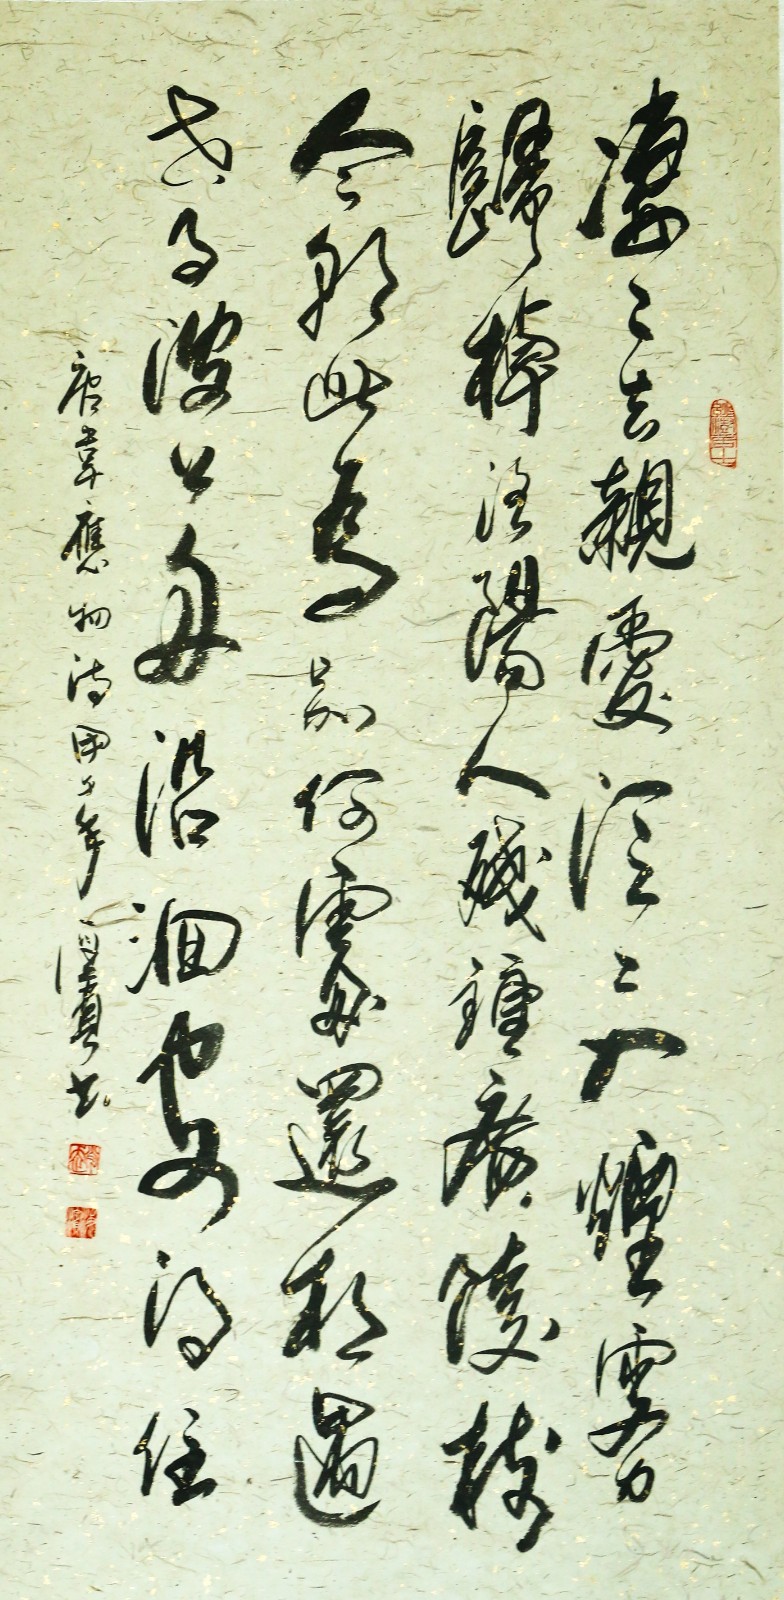 凄〻去親愛泛〻入煙霧
歸棹洛陽人殘鐘廣陵樹
今朝此為別何處還相遇
世事波上舟沿洄安得住
唐韋應物詩甲午年 書